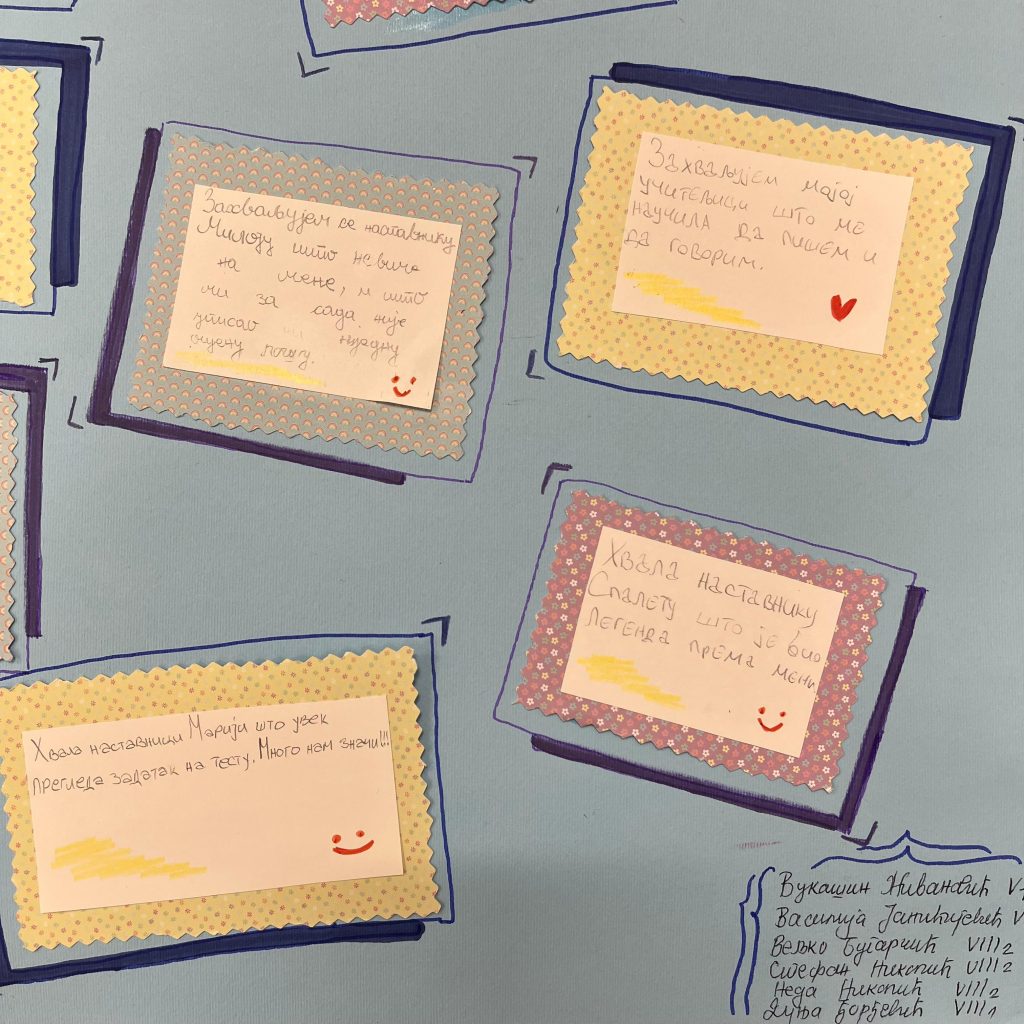 Захваљујем се наставнику
Милоју што не виче
на мене, и што
ми за сада није
уписао ни једну
оцену лошу.
Захваљујем мојој
учитељици што ме
научила да пишем и
да говорим.
Хвала наставнику
Спалету што је био
легенда према мени
Хвала наставници Марији што увек
прегледа задатак на тесту. Много нам значи!!!
Вукашин Живановић V
Василија Јанићијевић V
Вељко Бугарчић VIII2
Стефан Никопић VIII2
Неда Никопић VIII2
Дуња Ђорђевић VIII1